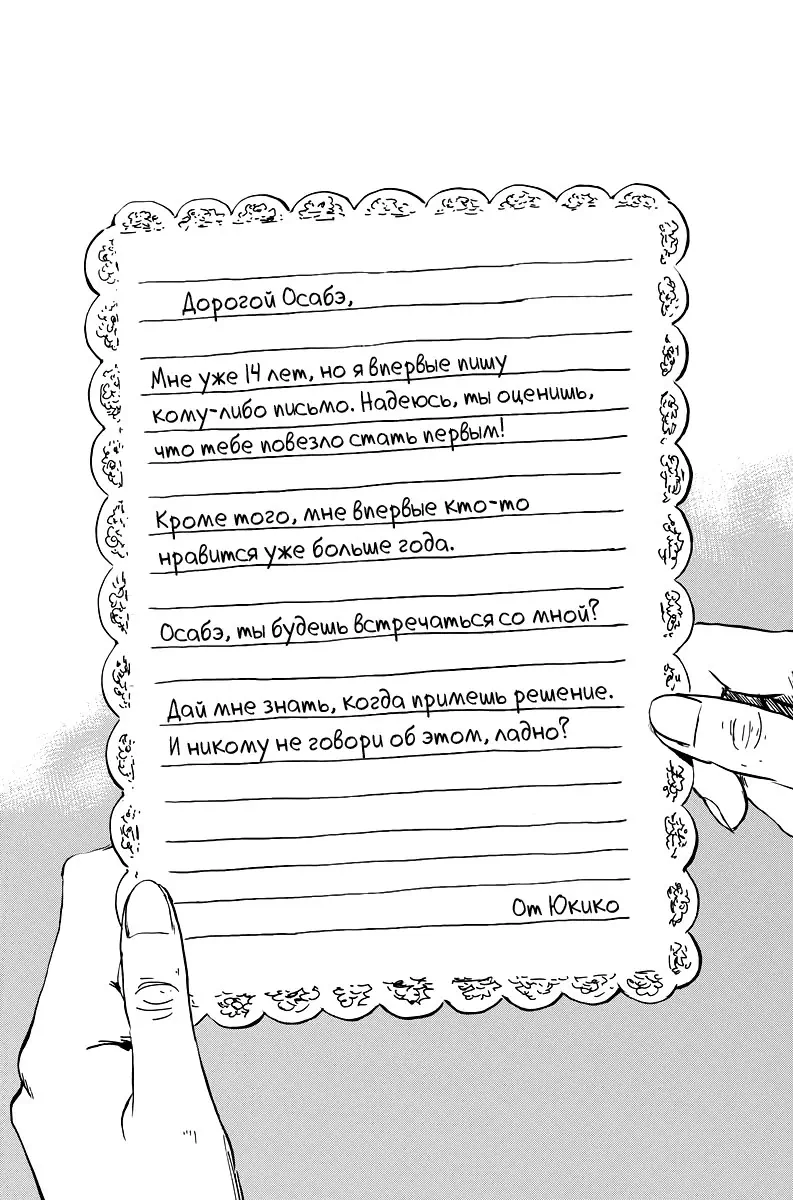 Дорогой Осабэ,
Мне уже 14 лет, но я впервые пишу
кому-либо письмо. Надеюсь, ты оценишь,
что тебе повезло стать первым!
Кроме того, мне впервые кто-то
нравится уже больше года.
Осабэ, ты будешь встречаться со мной?
Дай мне знать, когда примешь решение.
И никому не говори об этом, ладно?
От Юкико